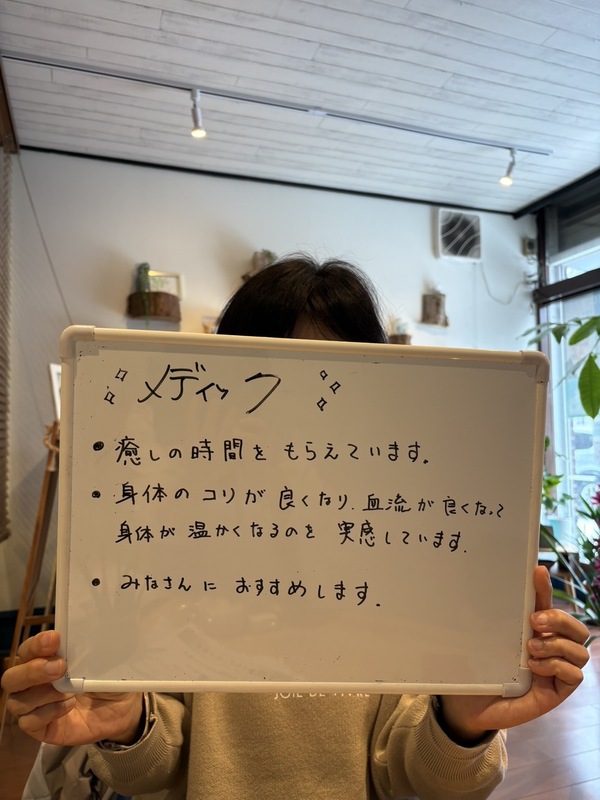 メディック
• 癒しの時間をもらえています。
• 身体のコリが良くなり、血流が良くなって
身体が温かくなるのを実感しています。
• みなさんにおすすめします。
JOIE DE VIVRE